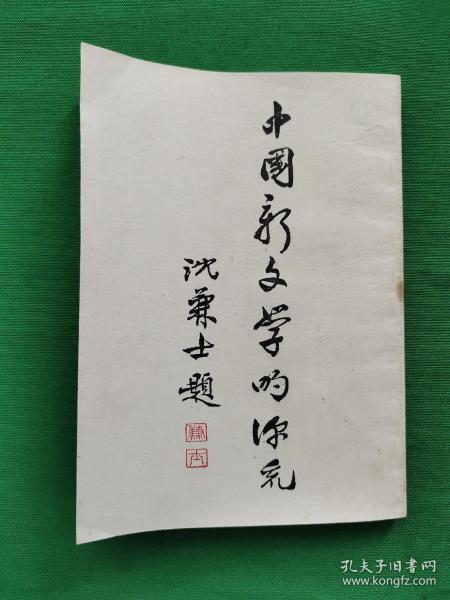 中國新文学的源流
沈兼士題
兼士
孔夫子旧书网
www.kongfz.com